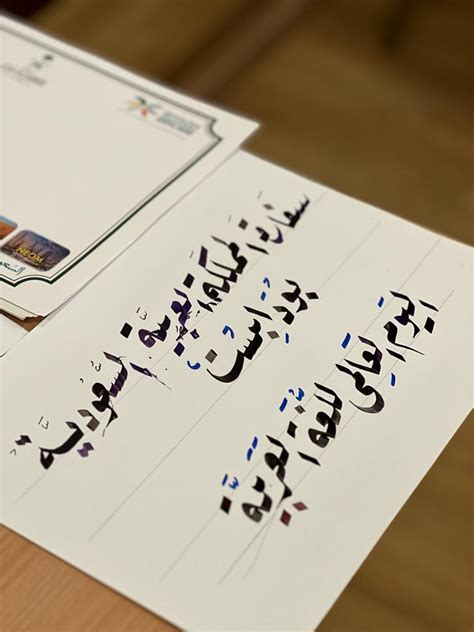 سفارة المملكة العربية السعودية
بودابست
اليوم العالمي للغة العربية
NEOM